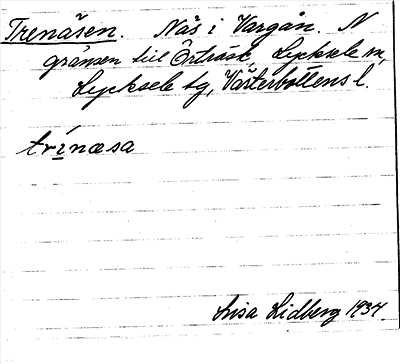 Trenäsen. Näs i Vargån. N
gränsen till Örträsk, Lycksele sn,
Lycksele tg, Västerbottens l.
trinæsa
Lisa Lidberg 1934.